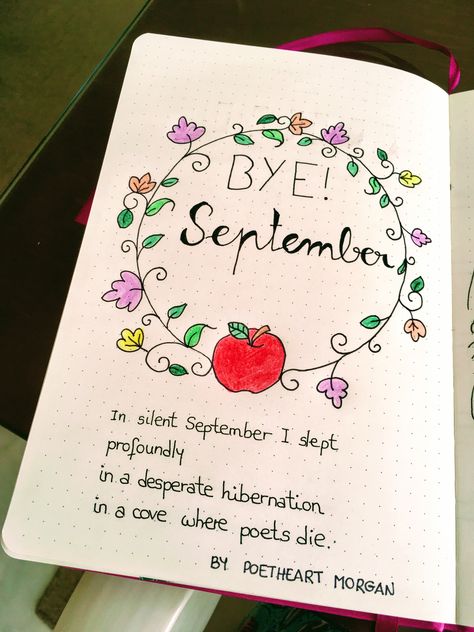 BYE!
September
In silent September I slept
profoundly
in a desperate hibernation
in a cove where poets die.
BY POETHEART MORGAN